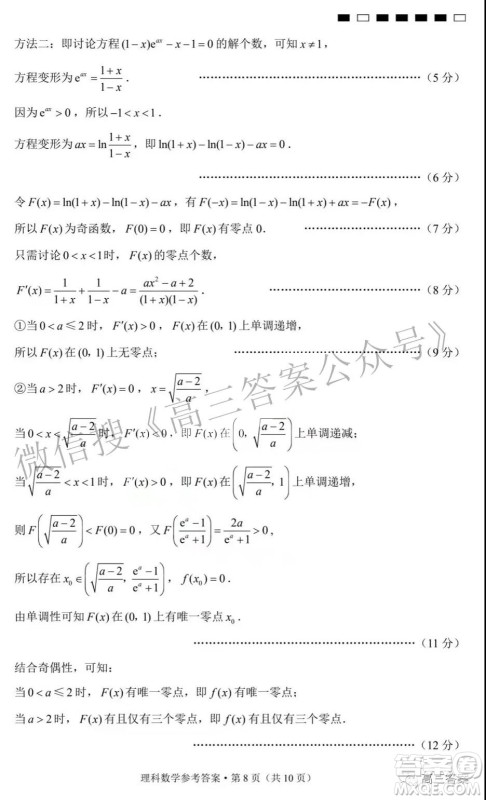 方法二：即讨论方程(1−x)e^{ax}−x−1=0的解个数，可知x≠1，
方程变形为e^{ax}=\frac{1+x}{1−x}． ……………………………………（5分）
因为e^{ax}>0，所以−1<x<1．
方程变形为ax=ln\frac{1+x}{1−x}，即ln(1+x)−ln(1−x)−ax=0．
……………………………………（6分）
令F(x)=ln(1+x)−ln(1−x)−ax，有F(−x)=ln(1−x)−ln(1+x)+ax=−F(x)，
所以F(x)为奇函数，F(0)=0，即F(x)有零点0． ……………………（7分）
只需讨论0<x<1时，F(x)的零点个数，
F′(x)=\frac{1}{1+x}+\frac{1}{1−x}−a=\frac{ax^2−a+2}{(1+x)(1−x)}． ……………………（8分）
①当0<a≤2时，F′(x)>0，F(x)在(0, 1)上单调递增，
所以F(x)在(0, 1)上无零点； ……………………（9分）
②当a>2时，F′(x)=0，x=\sqrt{\frac{a−2}{a}}，
当0<x<\sqrt{\frac{a−2}{a}}时，F′(x)<0，即F(x)在(0, \sqrt{\frac{a−2}{a}})上单调递减；
当\sqrt{\frac{a−2}{a}}<x<1时，F′(x)>0，即F(x)在(\sqrt{\frac{a−2}{a}}, 1)上单调递增，
则F(\sqrt{\frac{a−2}{a}})<F(0)=0，又F(\frac{e^a−1}{e^a+1})=\frac{2a}{e^a+1}>0，
所以存在x_0∈(\sqrt{\frac{a−2}{a}}, \frac{e^a−1}{e^a+1})，f(x_0)=0．
由单调性可知F(x)在(0, 1)上有唯一零点x_0．
……………………………………（11分）
结合奇偶性，可知：
当0<a≤2时，F(x)有唯一零点，即f(x)有唯一零点；
当a>2时，F(x)有且仅有三个零点，即f(x)有且仅有三个零点．
……………………………………（12分）
理科数学参考答案·第8页（共10页）
微信搜《高三答案公众号》
高三答案